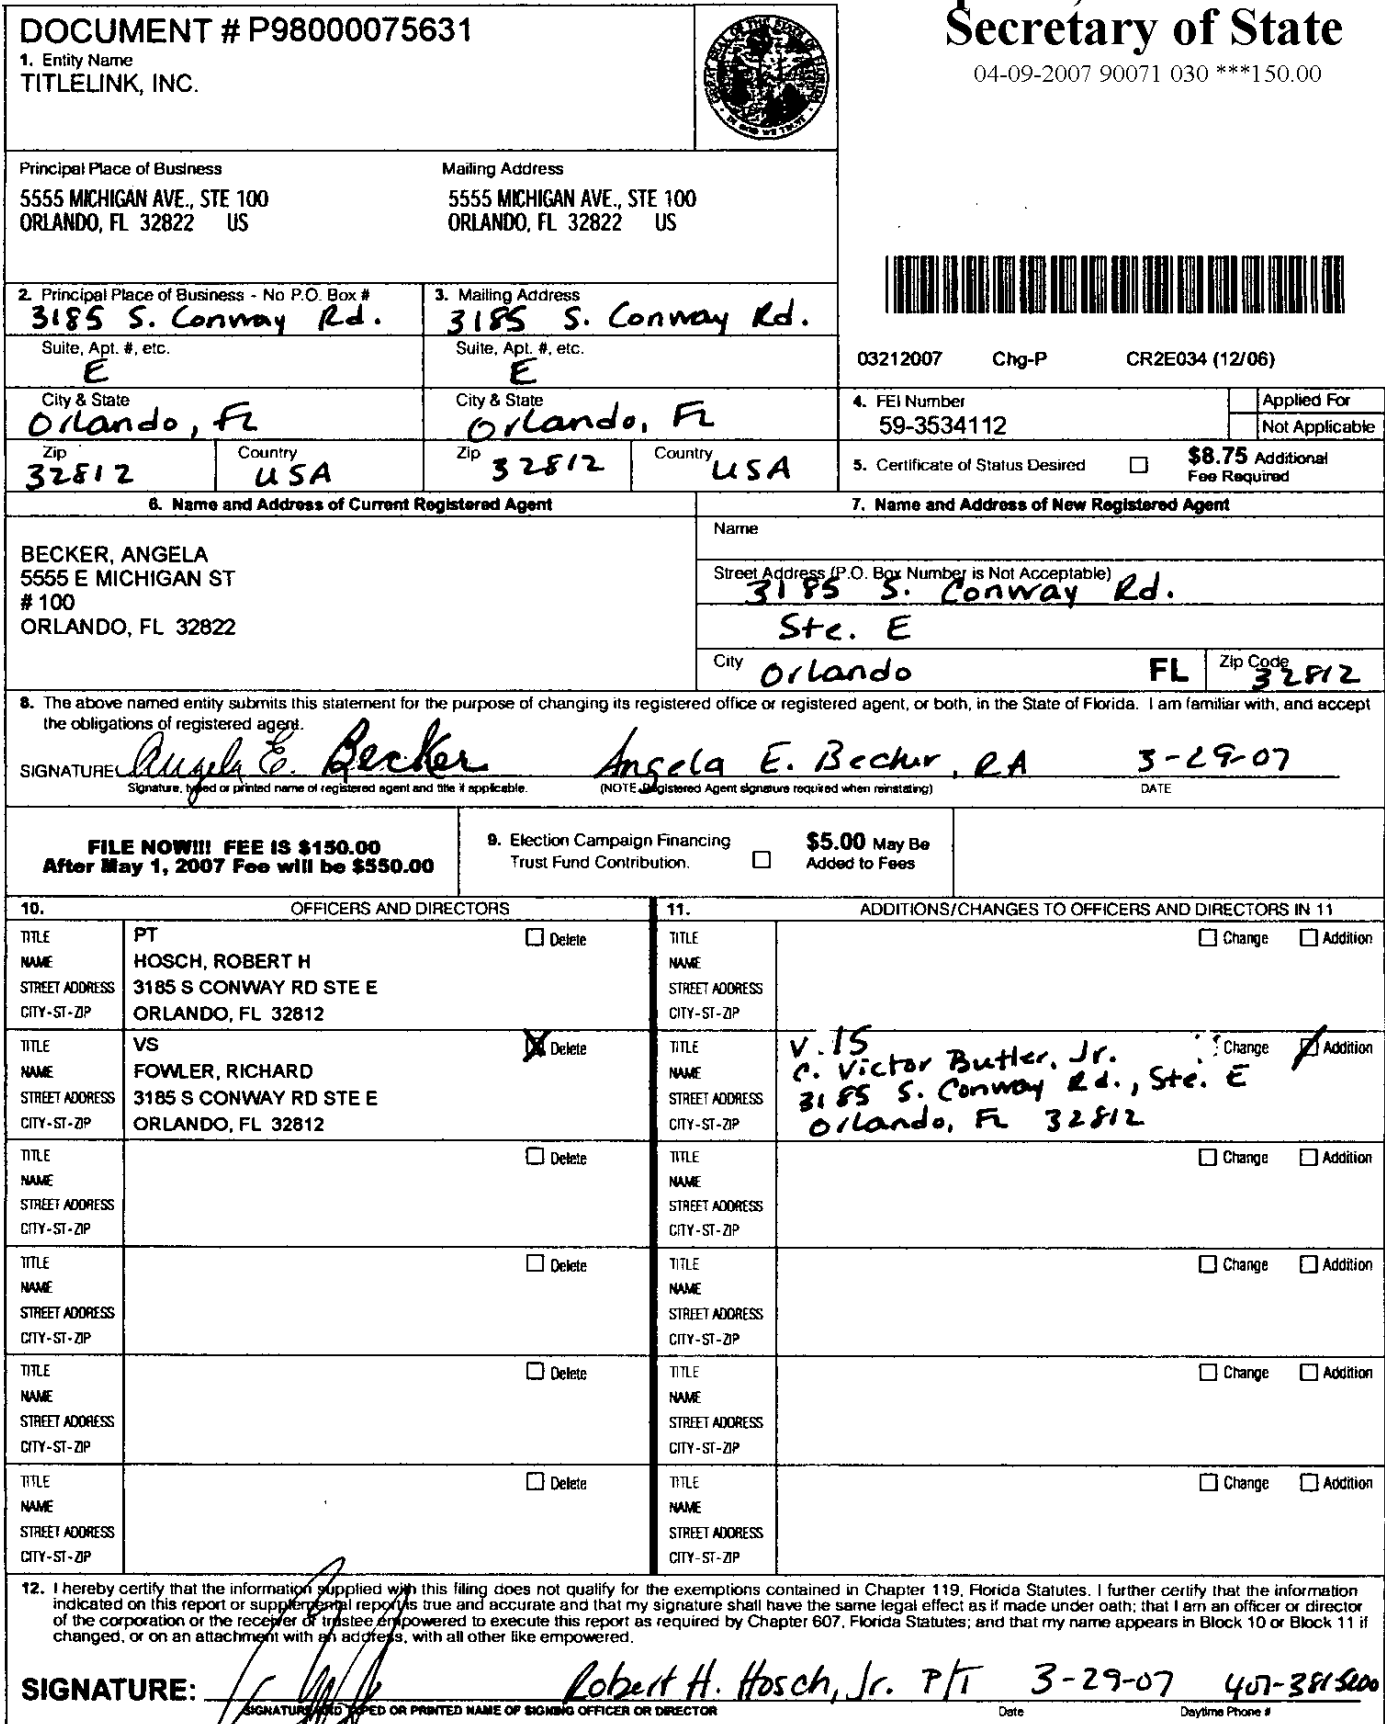 DOCUMENT # P98000075631
1. Entity Name
TITLELINK, INC.
Secretary of State
04-09-2007 90071 030 ***150.00
Principal Place of Business
5555 MICHIGAN AVE., STE 100
ORLANDO, FL 32822 US
Mailing Address
5555 MICHIGAN AVE., STE 100
ORLANDO, FL 32822 US
2. Principal Place of Business - No P.O. Box #
3185 S. Conway Rd.
3. Mailing Address
3185 S. Conway Rd.
Suite, Apt. #, etc.
E
Suite, Apt. #, etc.
E
03212007 Chg-P CR2E034 (12/06)
City & State
Orlando, FL
City & State
Orlando, FL
4. FEI Number
59-3534112
Applied For
Not Applicable
Zip
32812
Country
USA
Zip
32812
Country
USA
5. Certificate of Status Desired
$8.75 Additional
Fee Required
6. Name and Address of Current Registered Agent
BECKER, ANGELA
5555 E MICHIGAN ST
# 100
ORLANDO, FL 32822
7. Name and Address of New Registered Agent
Name
Street Address (P.O. Box Number is Not Acceptable)
3185 S. Conway Rd.
Ste. E
City Orlando FL Zip Code 32812
8. The above named entity submits this statement for the purpose of changing its registered office or registered agent, or both, in the State of Florida. I am familiar with, and accept
the obligations of registered agent.
SIGNATURE Angela E. Becker Angela E. Becker, RA 3-29-07
Signature, typed or printed name of registered agent and title if applicable. (NOTE Registered Agent signature required when reinstating) DATE
FILE NOW!!! FEE IS $150.00
After May 1, 2007 Fee will be $550.00
9. Election Campaign Financing
Trust Fund Contribution.
$5.00 May Be
Added to Fees
10. OFFICERS AND DIRECTORS
11. ADDITIONS/CHANGES TO OFFICERS AND DIRECTORS IN 11
TITLE PT Delete
NAME HOSCH, ROBERT H
STREET ADDRESS 3185 S CONWAY RD STE E
CITY-ST-ZIP ORLANDO, FL 32812
TITLE Change Addition
NAME
STREET ADDRESS
CITY-ST-ZIP
TITLE VS X Delete
NAME FOWLER, RICHARD
STREET ADDRESS 3185 S CONWAY RD STE E
CITY-ST-ZIP ORLANDO, FL 32812
TITLE Change Addition
NAME C. Victor Butler, Jr.
STREET ADDRESS 3185 S. Conway Rd., Ste. E
CITY-ST-ZIP Orlando, FL 32812
TITLE Delete
NAME
STREET ADDRESS
CITY-ST-ZIP
TITLE Change Addition
NAME
STREET ADDRESS
CITY-ST-ZIP
TITLE Delete
NAME
STREET ADDRESS
CITY-ST-ZIP
TITLE Change Addition
NAME
STREET ADDRESS
CITY-ST-ZIP
TITLE Delete
NAME
STREET ADDRESS
CITY-ST-ZIP
TITLE Change Addition
NAME
STREET ADDRESS
CITY-ST-ZIP
TITLE Delete
NAME
STREET ADDRESS
CITY-ST-ZIP
TITLE Change Addition
NAME
STREET ADDRESS
CITY-ST-ZIP
12. I hereby certify that the information supplied with this filing does not qualify for the exemptions contained in Chapter 119, Florida Statutes. I further certify that the information
indicated on this report or supplemental report is true and accurate and that my signature shall have the same legal effect as if made under oath; that I am an officer or director
of the corporation or the receiver or trustee empowered to execute this report as required by Chapter 607, Florida Statutes; and that my name appears in Block 10 or Block 11 if
changed, or on an attachment with an address, with all other like empowered.
SIGNATURE: Robert H. Hosch, Jr. P/T 3-29-07
SIGNATURE AND TYPED OR PRINTED NAME OF SIGNING OFFICER OR DIRECTOR Date Daytime Phone #